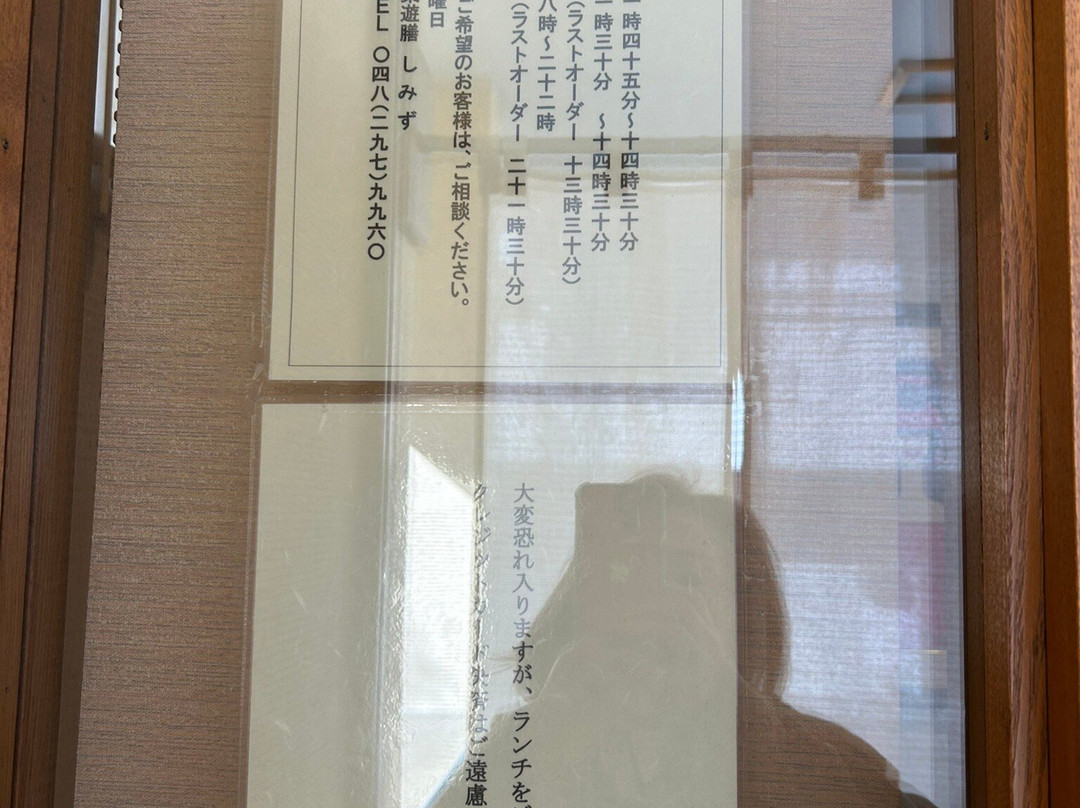 時四十五分～十四時三十分
時三十分　～十四時三十分
（ラストオーダー　十三時三十分）
八時～二十二時
（ラストオーダー　二十一時三十分）
ご希望のお客様は、ご相談ください。
曜日
遊膳　しみず
EL　〇四八（二九七）九九六〇
大変恐れ入りますが、ランチを
クレジットカード決済はご遠慮